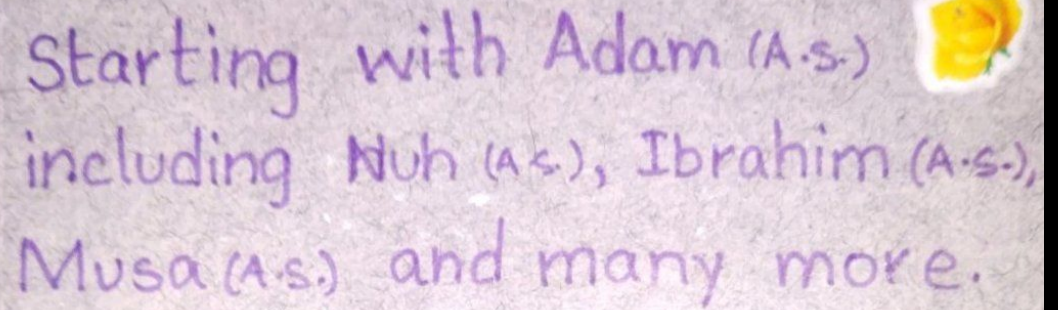 Starting with Adam (A.S.)
including Nuh (A.S.), Ibrahim (A.S.),
Musa (A.S.) and many more.